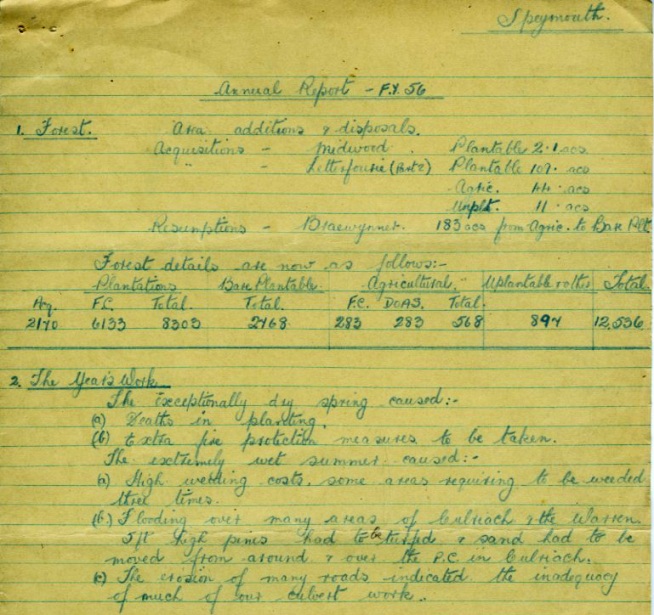 Speymouth.
Annual Report - F.Y. 56
1. Forest. Area additions & disposals.
Acquisitions - Midwood. Plantable 2.1 acs
- Letterfourie (Part 2) Plantable 107. acs
Agric. 44. acs
Unplt. 11. acs
Resumptions - Braewynner. 183 acs from Agric. to Bare Plt
Forest details are now as follows:-
Plantations Bare Plantable. Agricultural. Total.
F.C. Total. Total. F.C. DOAS. Total.
2170 6133 8303 2768 283 283 568 894 12,536
2. The Year's Work
The exceptionally dry spring caused:-
(a) Deaths in planting.
(b) Extra fire protection measures to be taken.
The extremely wet summer caused:-
(a) High weeding costs, some areas requiring to be weeded
three times.
(b.) Flooding over many areas of Culriach & the Warren.
5ft high pines had to be turfed & sand had to be
moved from around & over the P.C. in Culriach.
(c) The erosion of many roads indicated the inadequacy
of much of our culvert work.